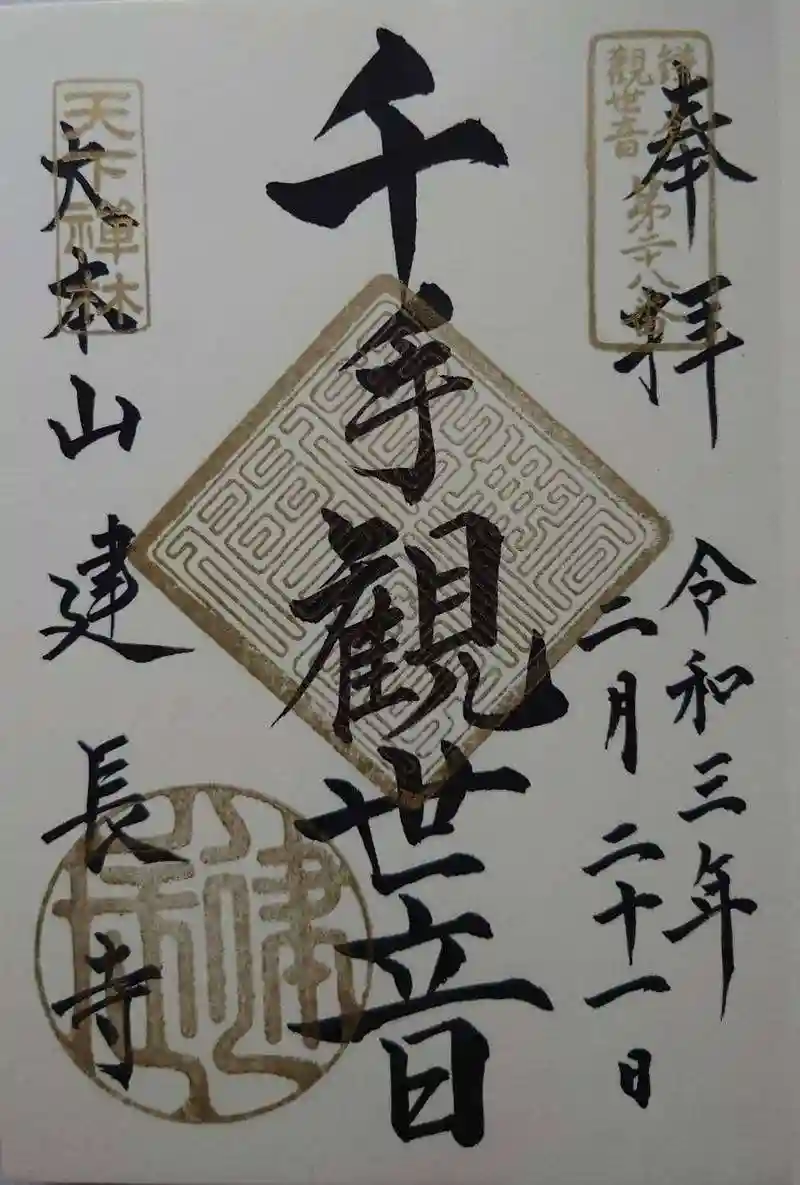 奉拝
鎌倉
觀世音
第二十八番
令和三年
二月二十一日
千手觀世音
大本山建長寺
天下禅林